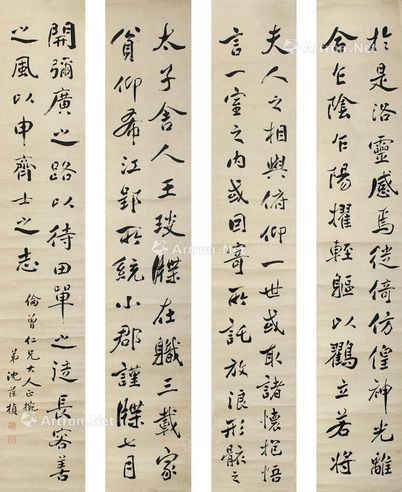 於是洛靈感焉徙倚仿偟神光離
合乍陰乍陽擢輕軀以鶴立若將
夫人之相與俯仰一世或取諸懷抱悟
言一室之內或因寄所託放浪形骸之
太子舍人王琰牒在職三載家
貧仰希江郢所統小郡謹牒七月
開彌廣之路以待田單之徒長容善
之風以申齊士之志
倫曾仁兄大人正
弟沈葆楨
Artron.Net
Artron.Net
Artron.Net
Artron.Net